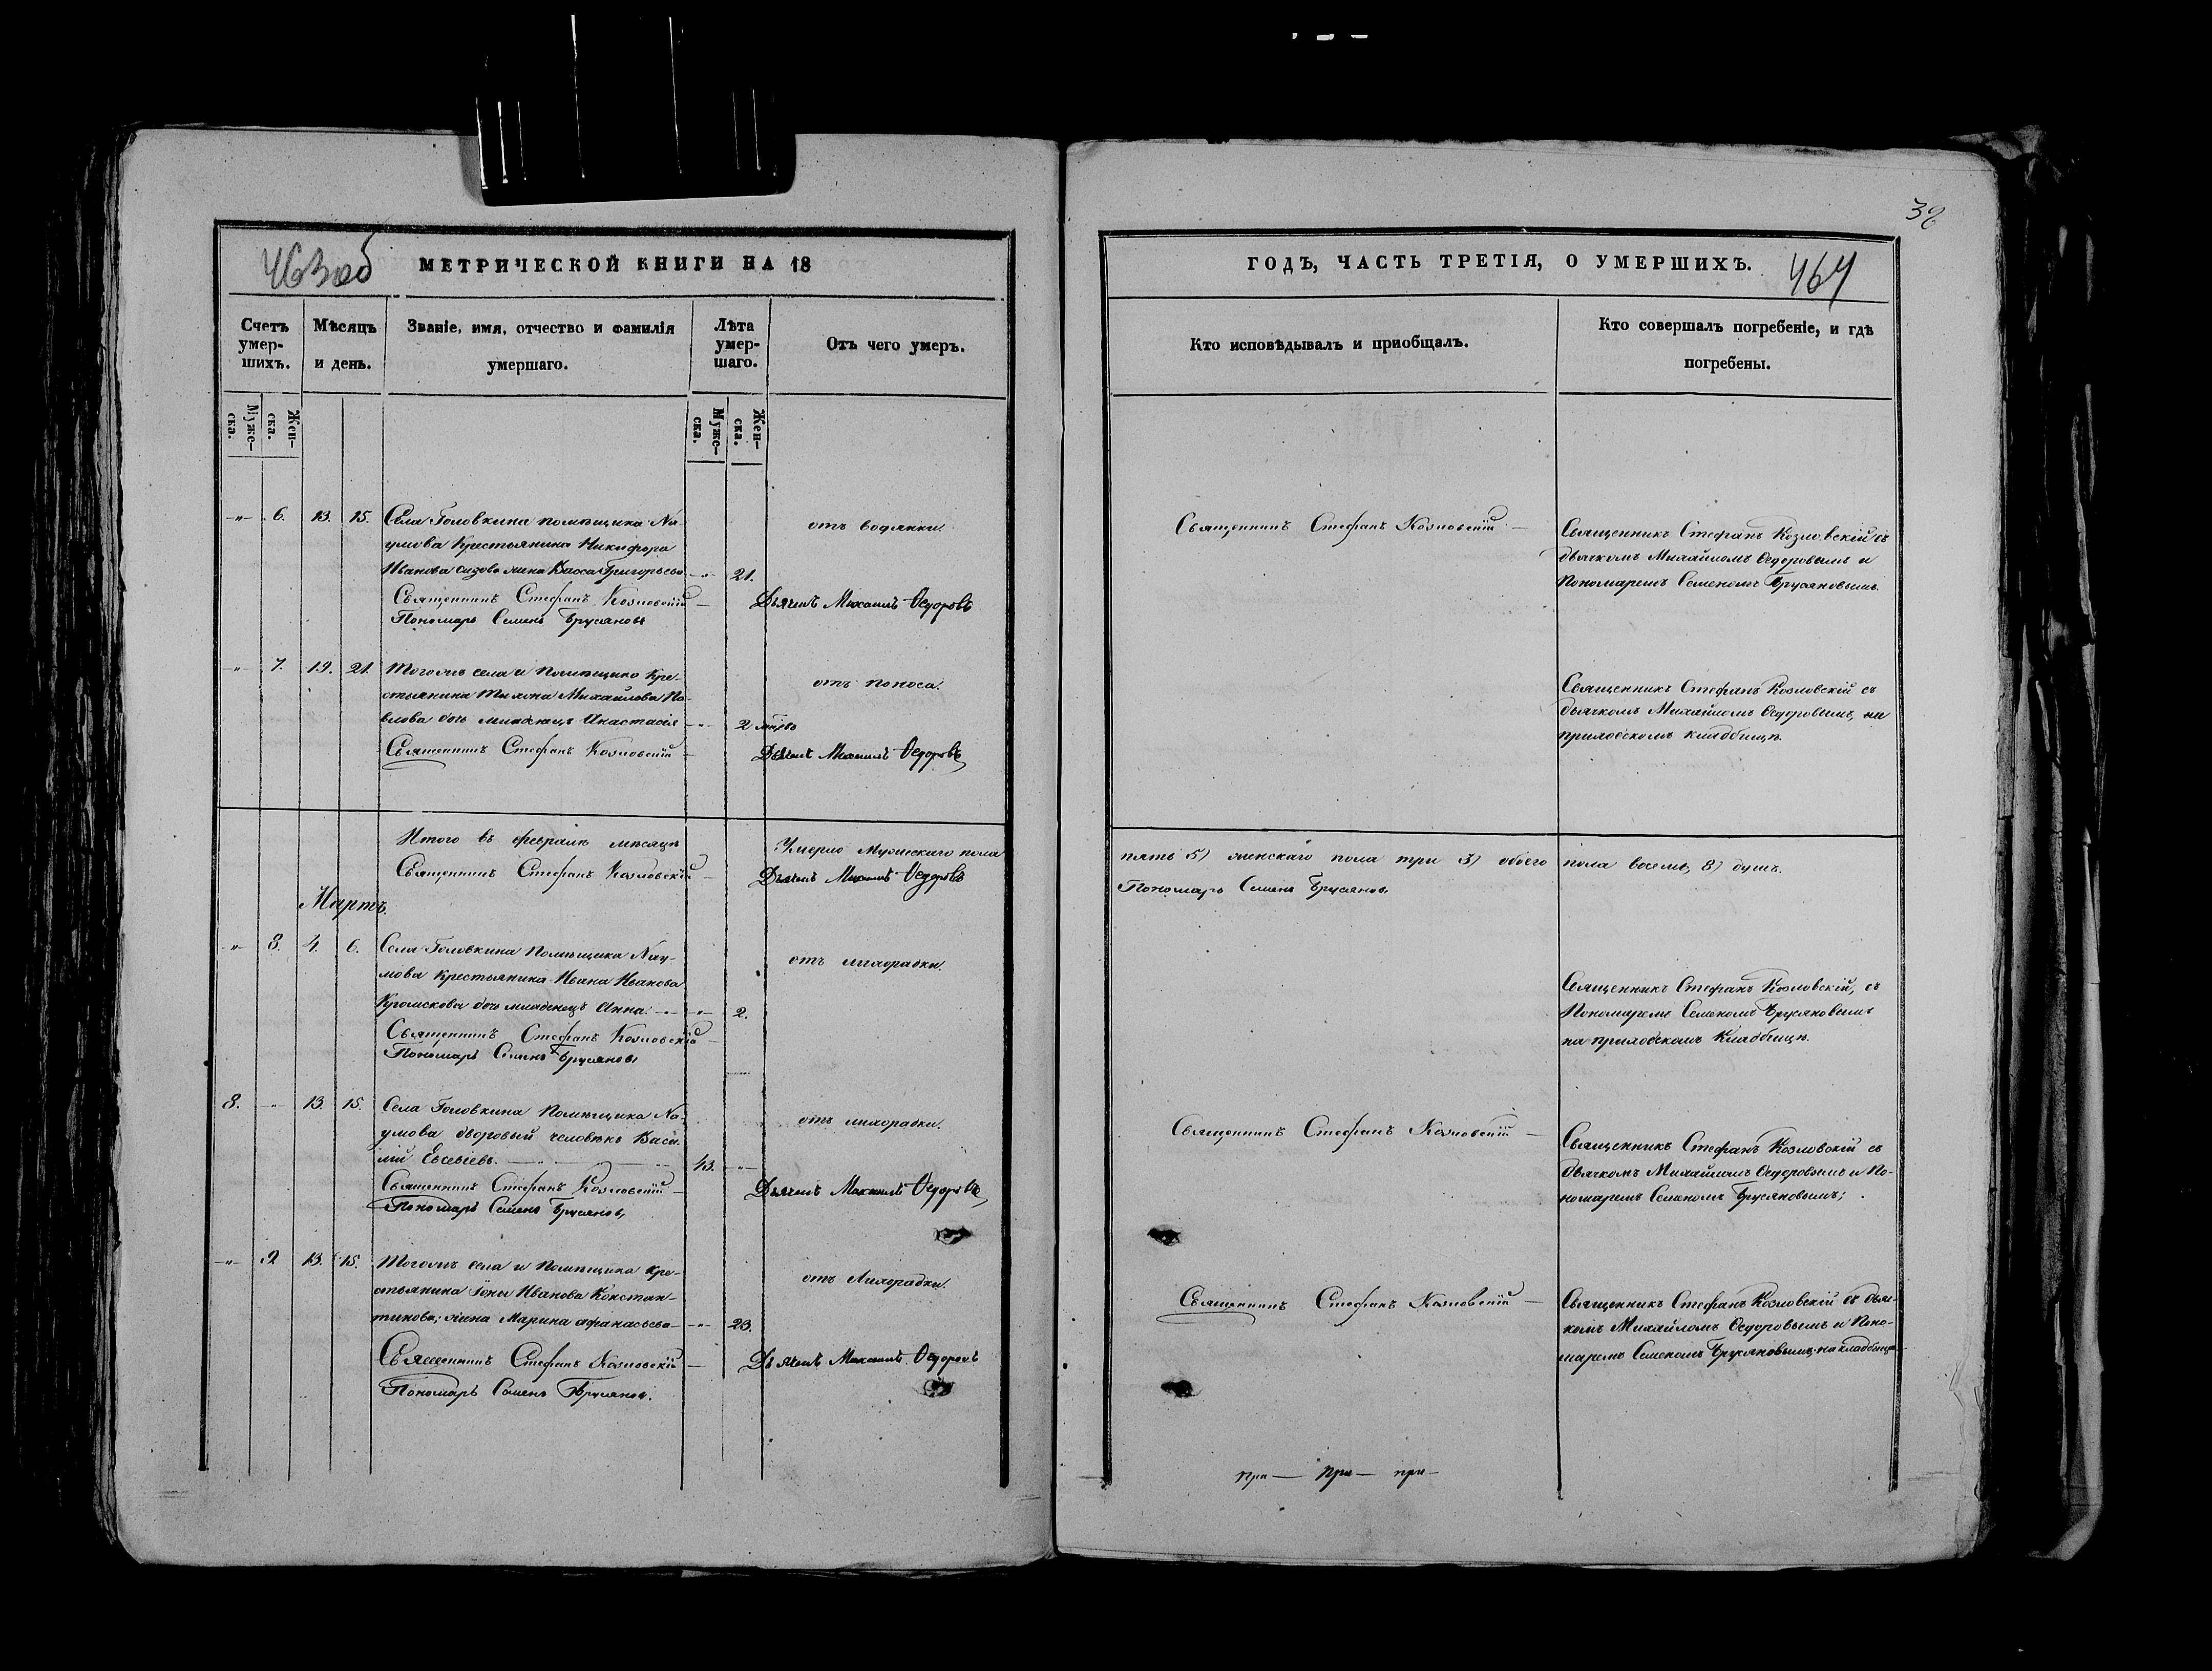 463об
МЕТРИЧЕСКОЙ КНИГИ НА 18
Счетъ умер-шихъ.
Мѣсяцъ и день.
Званіе, имя, отчество и фамилія умершаго.
Лѣта умер-шаго.
Отъ чего умеръ.
Муже-ска.
Жен-ска.
Муже-ска.
Жен-ска.
-"- 6. 13. 15. Села Головкина помѣщика На-
умова Крестьянина Никифора
отъ водянки.
Иванова Сизова жена Васса Григорьева -"- 21.
Священникъ Стефанъ Козловскій
Дьячекъ Михаилъ Ѳедоровъ
Пономарь Семенъ Брусяновъ
-"- 7. 19. 21. Тогожъ села и Помѣщика Кре-
стьянина Тихона Михайлова Па-
отъ поноса.
влова дочь младенецъ Анастасія -"- 2
Священникъ Стефанъ Козловскій
Дьячекъ Михаилъ Ѳедоровъ
Итого въ февралѣ мѣсяцѣ
Умерло Мужескаго пола
Священникъ Стефанъ Козловскій
Дьячекъ Михаилъ Ѳедоровъ
Мартъ.
-"- 8. 4. 6. Села Головкина Помѣщика Нау-
мова Крестьянина Ивана Иванова
отъ лихорадки.
дочь младенецъ Анна. -"- 2.
Священникъ Стефанъ Козловскій
Пономарь Семенъ Брусяновъ
8. -"- 13. 15. Села Головкина Помѣщика На-
умова дворовый человѣкъ Васи-
отъ лихорадки.
лій Евсевіевъ. 43. -"-
Священникъ Стефанъ Козловскій
Дьячекъ Михаилъ Ѳедоровъ
Пономарь Семенъ Брусяновъ
-"- 9 13. 15. Тогожъ села и Помѣщика Кре-
стьянина Іоны Иванова Констан-
отъ Лихорадки.
тинова; жена Марина Афанасьева -"- 23.
Священникъ Стефанъ Козловскій
Дьячекъ Михаилъ Ѳедоровъ
Пономарь Семенъ Брусяновъ.
ГОДЪ, ЧАСТЬ ТРЕТІЯ, О УМЕРШИХЪ.
464
Кто исповѣдывалъ и пріобщалъ.
Кто совершалъ погребеніе, и гдѣ погребены.
Священникъ Стефанъ Козловскій
Священникъ Стефанъ Козловскій съ
дьячкомъ Михайломъ Ѳедоровымъ и
Пономаремъ Семеномъ Брусяновымъ.
Священникъ Стефанъ Козловскій съ
дьячкомъ Михайломъ Ѳедоровымъ, на
приходскомъ кладбищѣ.
пять 5) женскаго пола три 3) обоего пола восемь, 8) душъ.
Пономарь Семенъ Брусяновъ
Священникъ Стефанъ Козловскій, съ
Пономаремъ Семеномъ Брусяновымъ
на приходскомъ Кладбищѣ.
Священникъ Стефанъ Козловскій
Священникъ Стефанъ Козловскій съ
дьячкомъ Михайломъ Ѳедоровымъ и По-
номаремъ Семеномъ Брусяновымъ;
Священникъ Стефанъ Козловскій
Священникъ Стефанъ Козловскій съ дьяч-
комъ Михайломъ Ѳедоровымъ и Поно-
маремъ Семеномъ Брусяновымъ, на кладбищѣ
при— при— при—